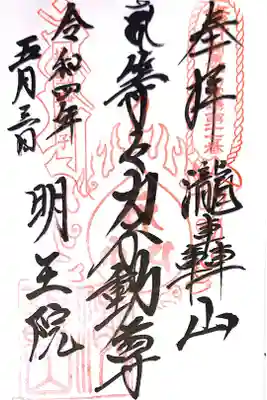 奉拝
瀧轟山
等々力不動尊
令和四年
五月三日
明王院